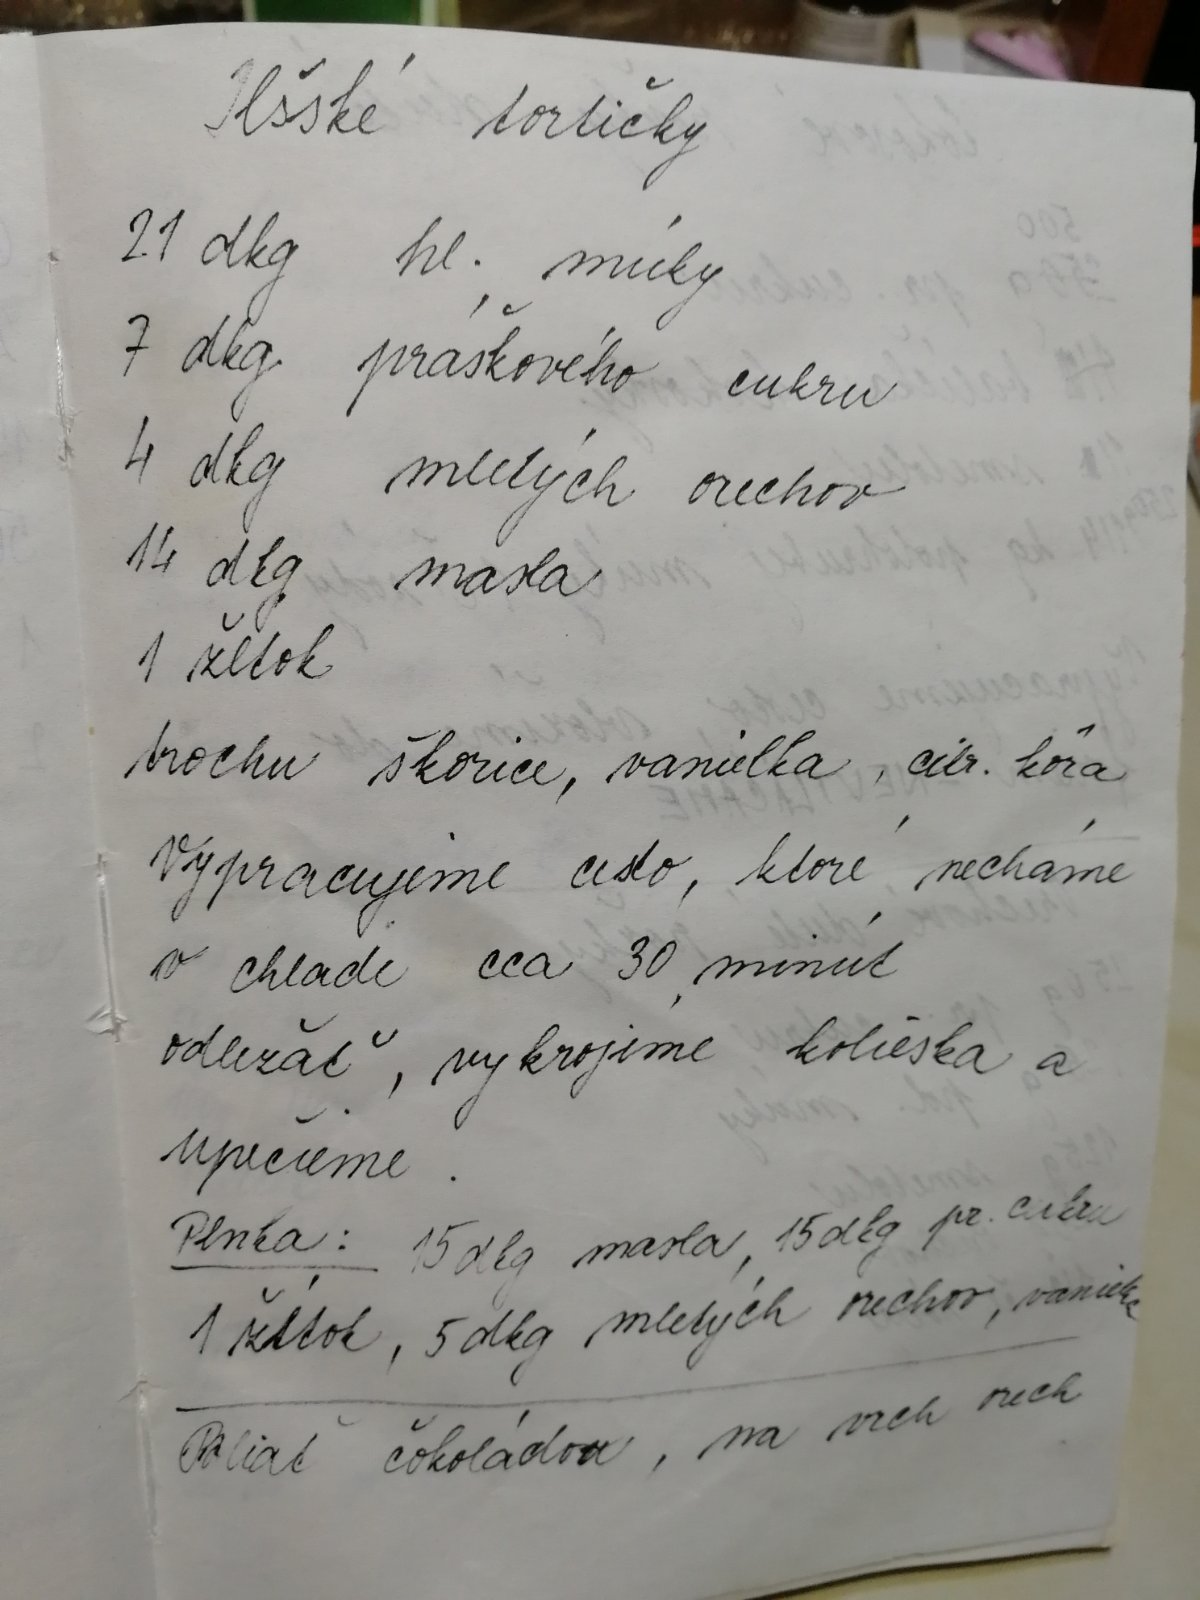 Ilšské tortičky
21 dkg hl. múky
7 dkg práškového cukru
4 dkg mletých orechov
14 dkg masla
1 žltok
trochu škorice, vanielka, citr. kôra
Vypracujeme cesto, ktoré necháme
v chlade cca 30 minút
odležať, vykrojíme kolieska a
upečieme.
Plnka: 15 dkg masla, 15 dkg pr. cukru
1 žĺtok, 5 dkg mletých orechov, vanielka
Poliať čokoládou, na vrch orech